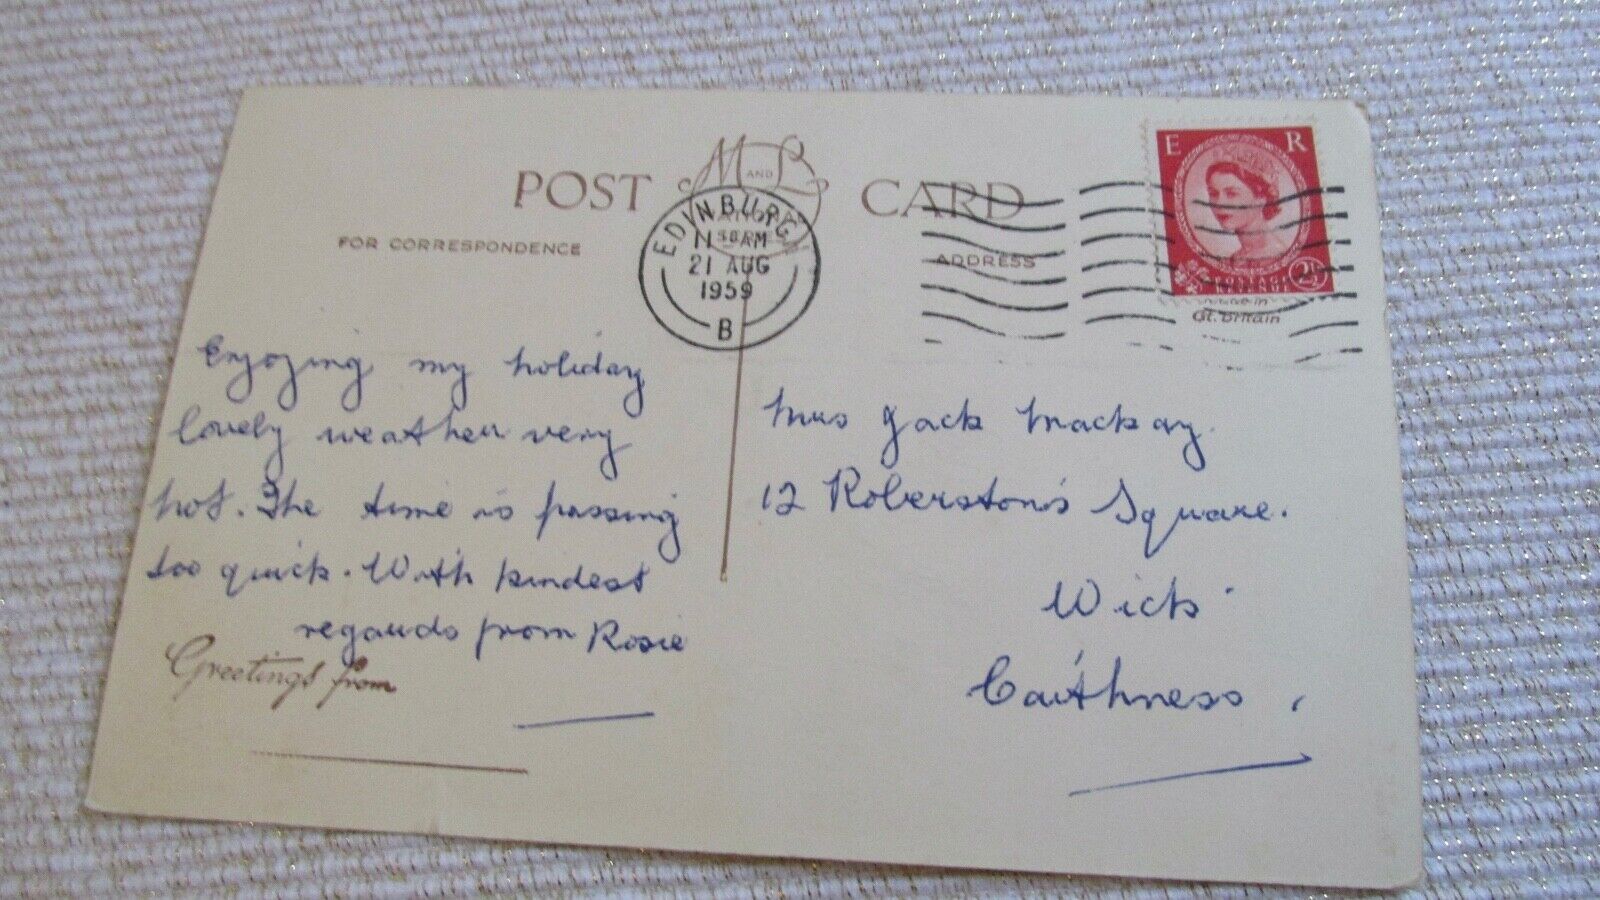 POST CARD
M AND L
FOR CORRESPONDENCE
ADDRESS
EDINBURGH
11 AM
21 AUG
1959
B
E R
2½
Gt. Britain
Enjoying my holiday
lovely weather very
hot. The time is passing
too quick. With kindest
regards from Rosie
Greetings from
Mrs Jack Mackay.
12 Roberston's Square.
Wick
Caithness,